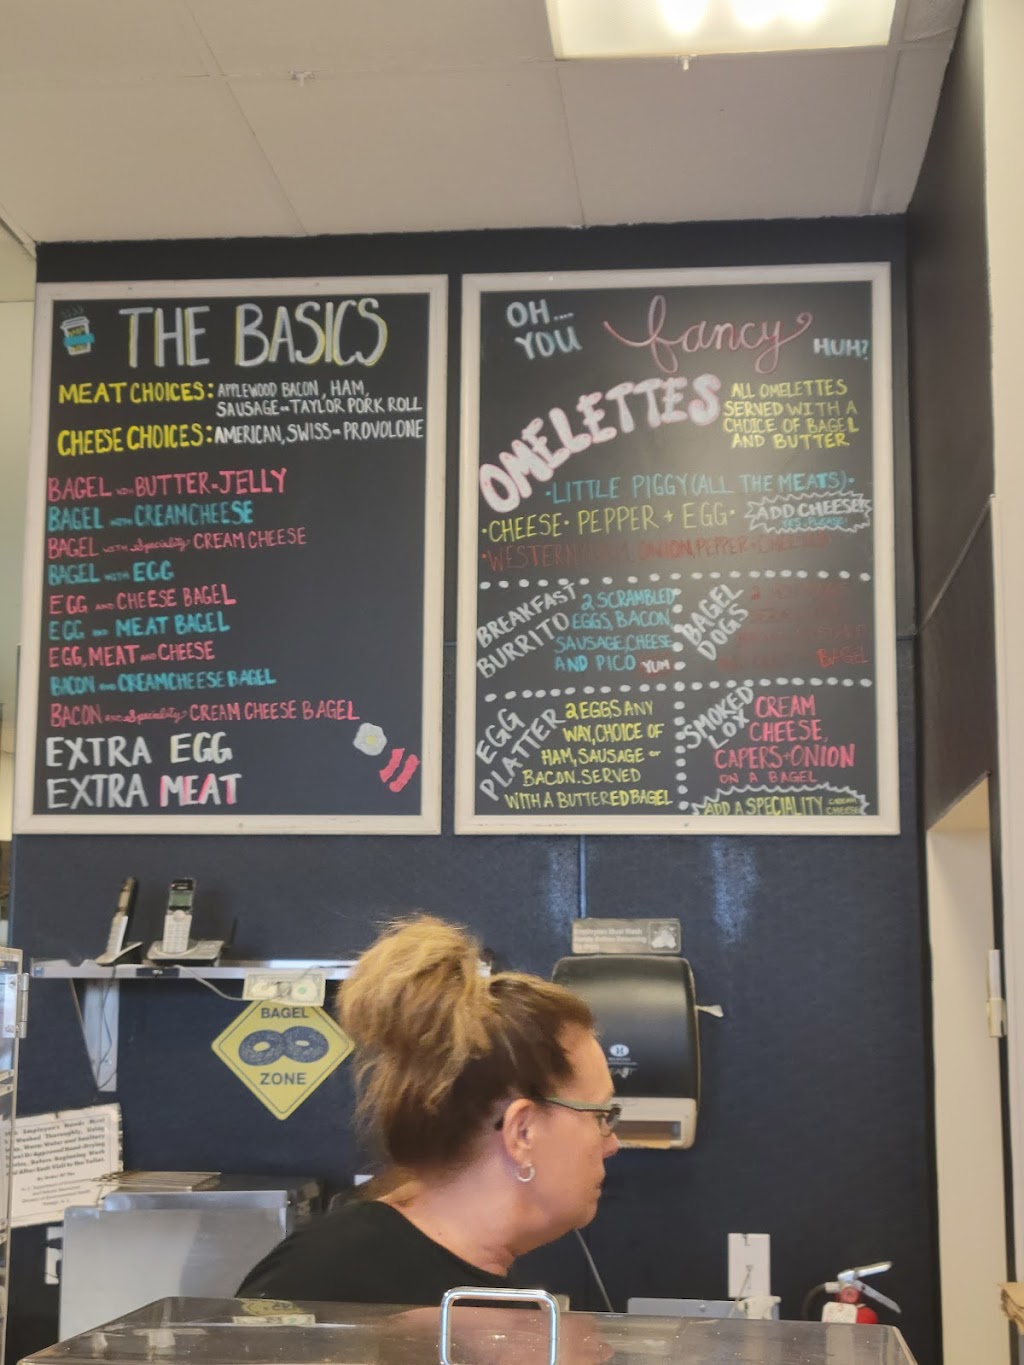 THE BASICS
MEAT CHOICES: APPLEWOOD BACON, HAM,
SAUSAGE OR TAYLOR PORK ROLL
CHEESE CHOICES: AMERICAN, SWISS OR PROVOLONE
BAGEL WITH BUTTER OR JELLY
BAGEL WITH CREAM CHEESE
BAGEL WITH Speciality CREAM CHEESE
BAGEL WITH EGG
EGG AND CHEESE BAGEL
EGG AND MEAT BAGEL
EGG, MEAT AND CHEESE
BACON AND CREAM CHEESE BAGEL
BACON AND Speciality CREAM CHEESE BAGEL
EXTRA EGG
EXTRA MEAT
OH....
YOU
fancy
HUH?
OMELETTES
ALL OMELETTES
SERVED WITH A
CHOICE OF BAGEL
AND BUTTER
·LITTLE PIGGY (ALL THE MEATS)·
·CHEESE· PEPPER + EGG·
ADD CHEESE?
YES, PLEASE
·WESTERN ONION, PEPPER +
BREAKFAST
BURRITO
2 SCRAMBLED
EGGS, BACON,
SAUSAGE, CHEESE
AND PICO
YUM
BAGEL
DOGS
BAGEL
EGG
PLATTER
2 EGGS ANY
WAY, CHOICE OF
HAM, SAUSAGE OR
BACON. SERVED
WITH A BUTTERED BAGEL
SMOKED
LOX
CREAM
CHEESE,
CAPERS + ONION
ON A BAGEL
ADD A SPECIALITY CREAM
CHEESE
Employees Must Wash
Hands Before Returning
To Work
BAGEL
ZONE